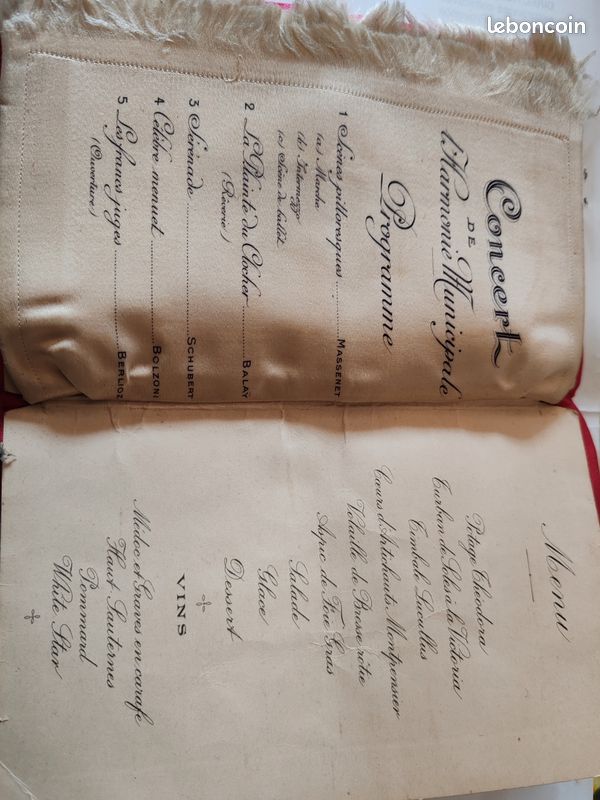 leboncoin
Concert
DE
l'Harmonie Municipale
Programme
1 Scènes pittoresques ........ MASSENET
(a) Marche
(b) Intermezzo
(c) Scène de ballet
2 La Plainte du Clocher ........ BALAY
(Rêverie)
3 Sérénade ........ SCHUBERT
4 Célèbre menuet ........ BOLZONI
5 Les francs juges ........ BERLIOZ
(Ouverture)
Menu
Potage Théodora
Turban de Soles à la Victoria
Timbale Lucullus
Cœurs d'Artichauts Montpensier
Volaille de Bresse rôtie
Aspic de Foie Gras
Salade
Glace
Dessert
VINS
Médoc et Graves en carafe
Haut Sauternes
Pommard
White Star